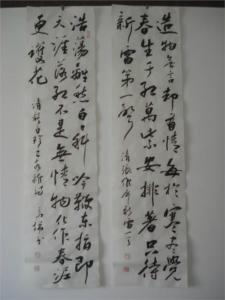 造物無言却有情每於寒盡覺
春生千紅萬紫安排著只待
新雷第一聲 清張維屏新雷一首
浩蕩離愁白日斜吟鞭東指即
天涯落紅不是無情物化作春泥
更護花 清龔自珍己亥雜詩 書